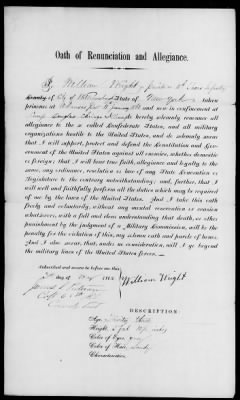 Oath of Renunciation and Allegiance.
I, William Wright, Private in 10th Texas Infantry
County of City of State of New York, taken
prisoner at Arkansas Post 11th January 1863 and now in confinement at
Camp Douglas Chicago Illinois hereby solemnly renounce all
allegiance to the so called Confederate States, and all military
organizations hostile to the United States, and do solemnly swear
that I will support, protect and defend the Constitution and Gov-
ernment of the United States against all enemies, whether domestic
or foreign; that I will bear true faith, allegiance and loyalty to the
same, any ordinance, resolution or law of any State Convention or
Legislature to the contrary notwithstanding; and further, that I
will well and faithfully perform all the duties which may be required
of me by the laws of the United States. And I take this oath
freely and voluntarily, without any mental reservation or evasion
whatsoever, with a full and clear understanding that death, or other
punishment by the judgment of a Military Commission, will be the
penalty for the violation of this, my solemn oath and parole of honor.
And I also swear, that under no consideration, will I go beyond
the military lines of the United States forces.
Subscribed and sworn to before me this
day of 1863
William Wright
James
Capt
DESCRIPTION:
Age, Twenty three
Height, 5 feet inches
Color of Eyes, gray
Color of Hair, Sandy
Characteristics,